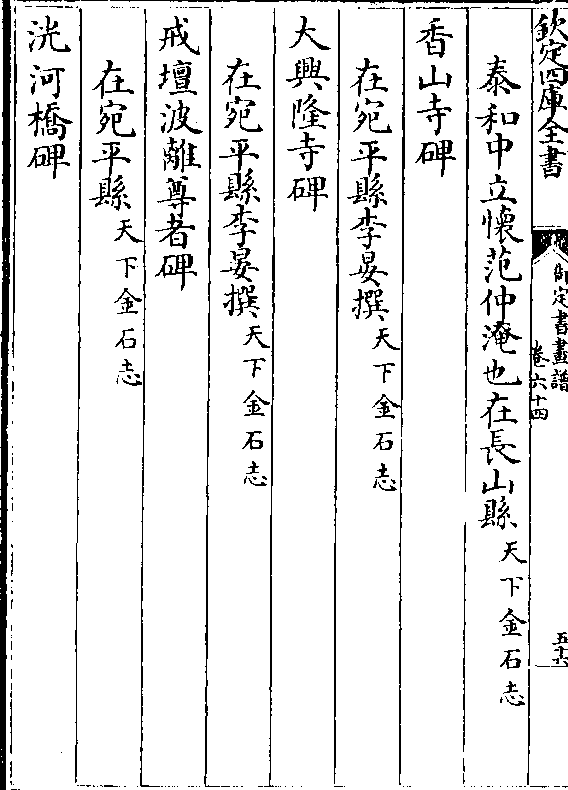 欽定四庫全書
御定書畫譜
卷六十四
五十六
泰和中立懷范仲淹也在長山縣天下金石志
香山寺碑
在宛平縣李晏撰天下金石志
大興隆寺碑
在宛平縣李晏撰天下金石志
戒壇波離尊者碑
在宛平縣天下金石志
洸河橋碑